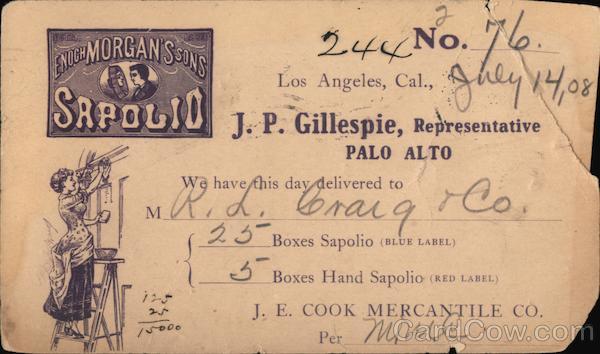 ENOCH MORGAN'S SONS
SAPOLIO
244 2
No. 76.
Los Angeles, Cal., July 14, 08
J. P. Gillespie, Representative
PALO ALTO
We have this day delivered to
M R. L. Craig & Co.
25 Boxes Sapolio (BLUE LABEL)
5 Boxes Hand Sapolio (RED LABEL)
125
25
15000
J. E. COOK MERCANTILE CO.
Per
CardCow.com